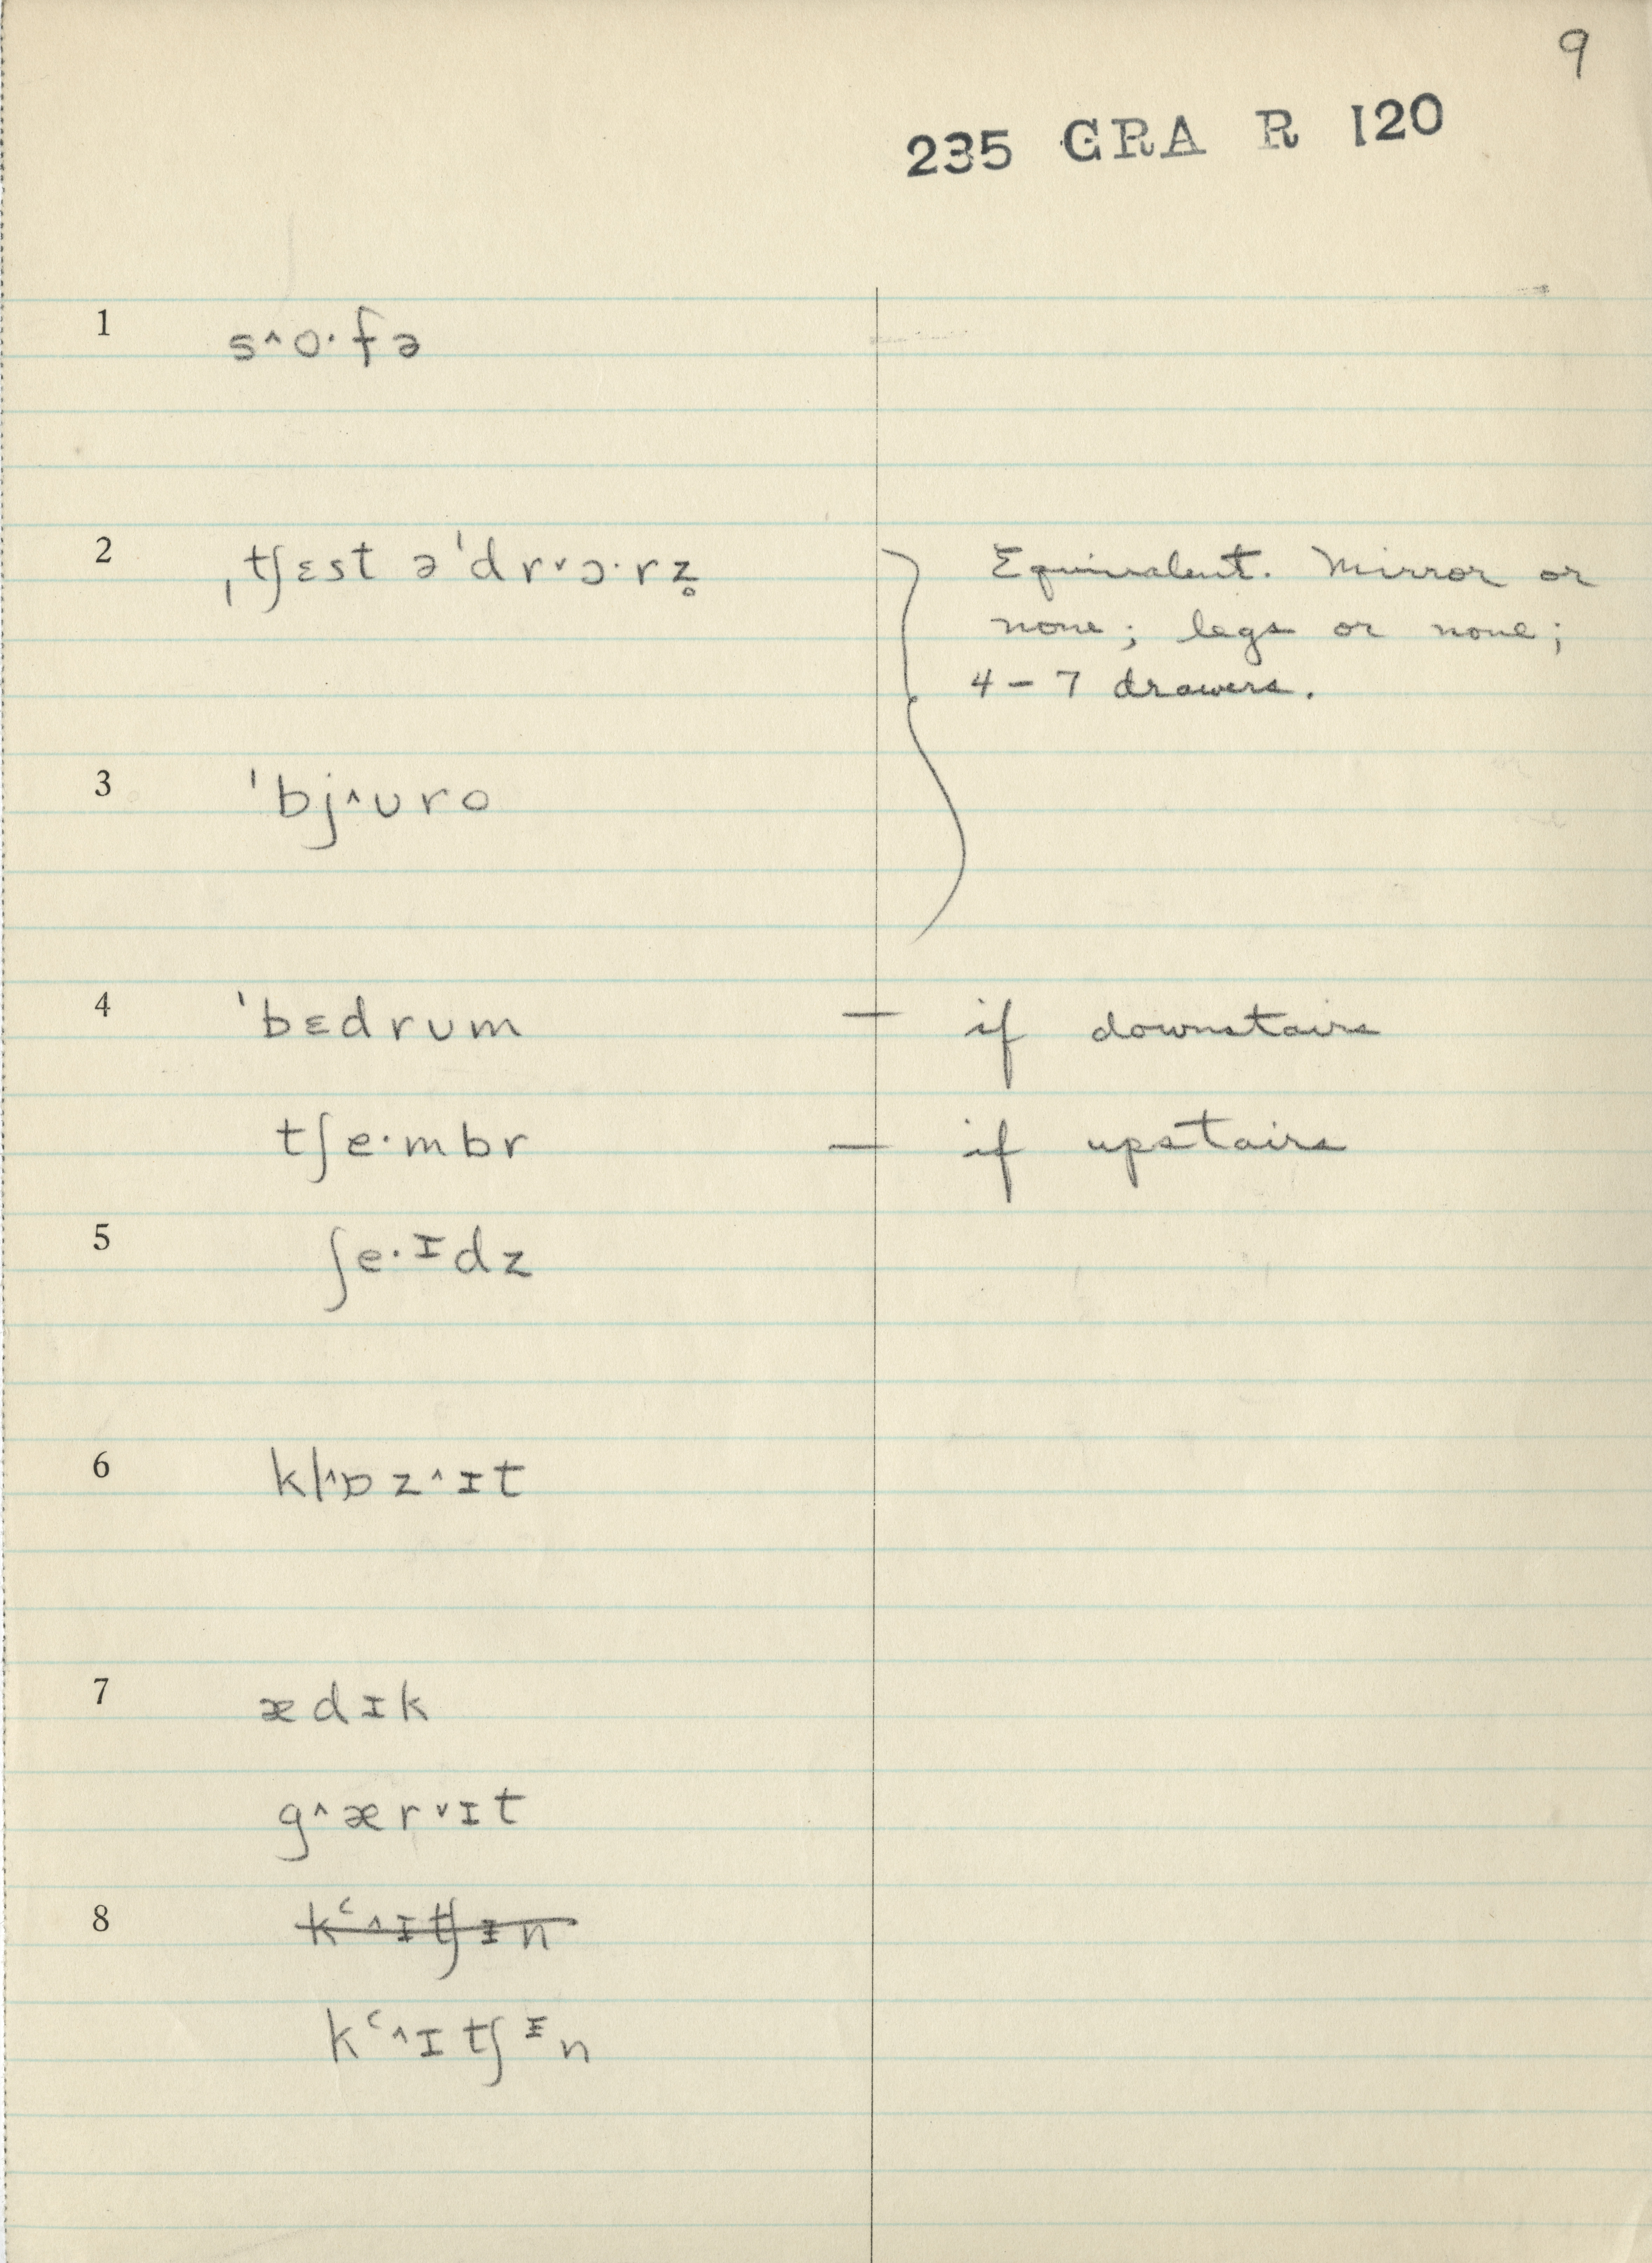 9
235 GRA R 120
1 s^o·fə
2 ˌtʃɛst ə ˈdr˅ɔ·rz̥
Equivalent. Mirror or
none; legs or none;
4 – 7 drawers.
3 ˈbj^ʊro
4 ˈbɛdrʊm — if downstairs
tʃe·mbr — if upstairs
5 ʃe·ᶦdz
6 kl^ɒz^ɪt
7 ædɪk
g^ær˅ɪt
8 kʻ^ɪtʃɪ̵n
kʻ^ɪtʃᶧn